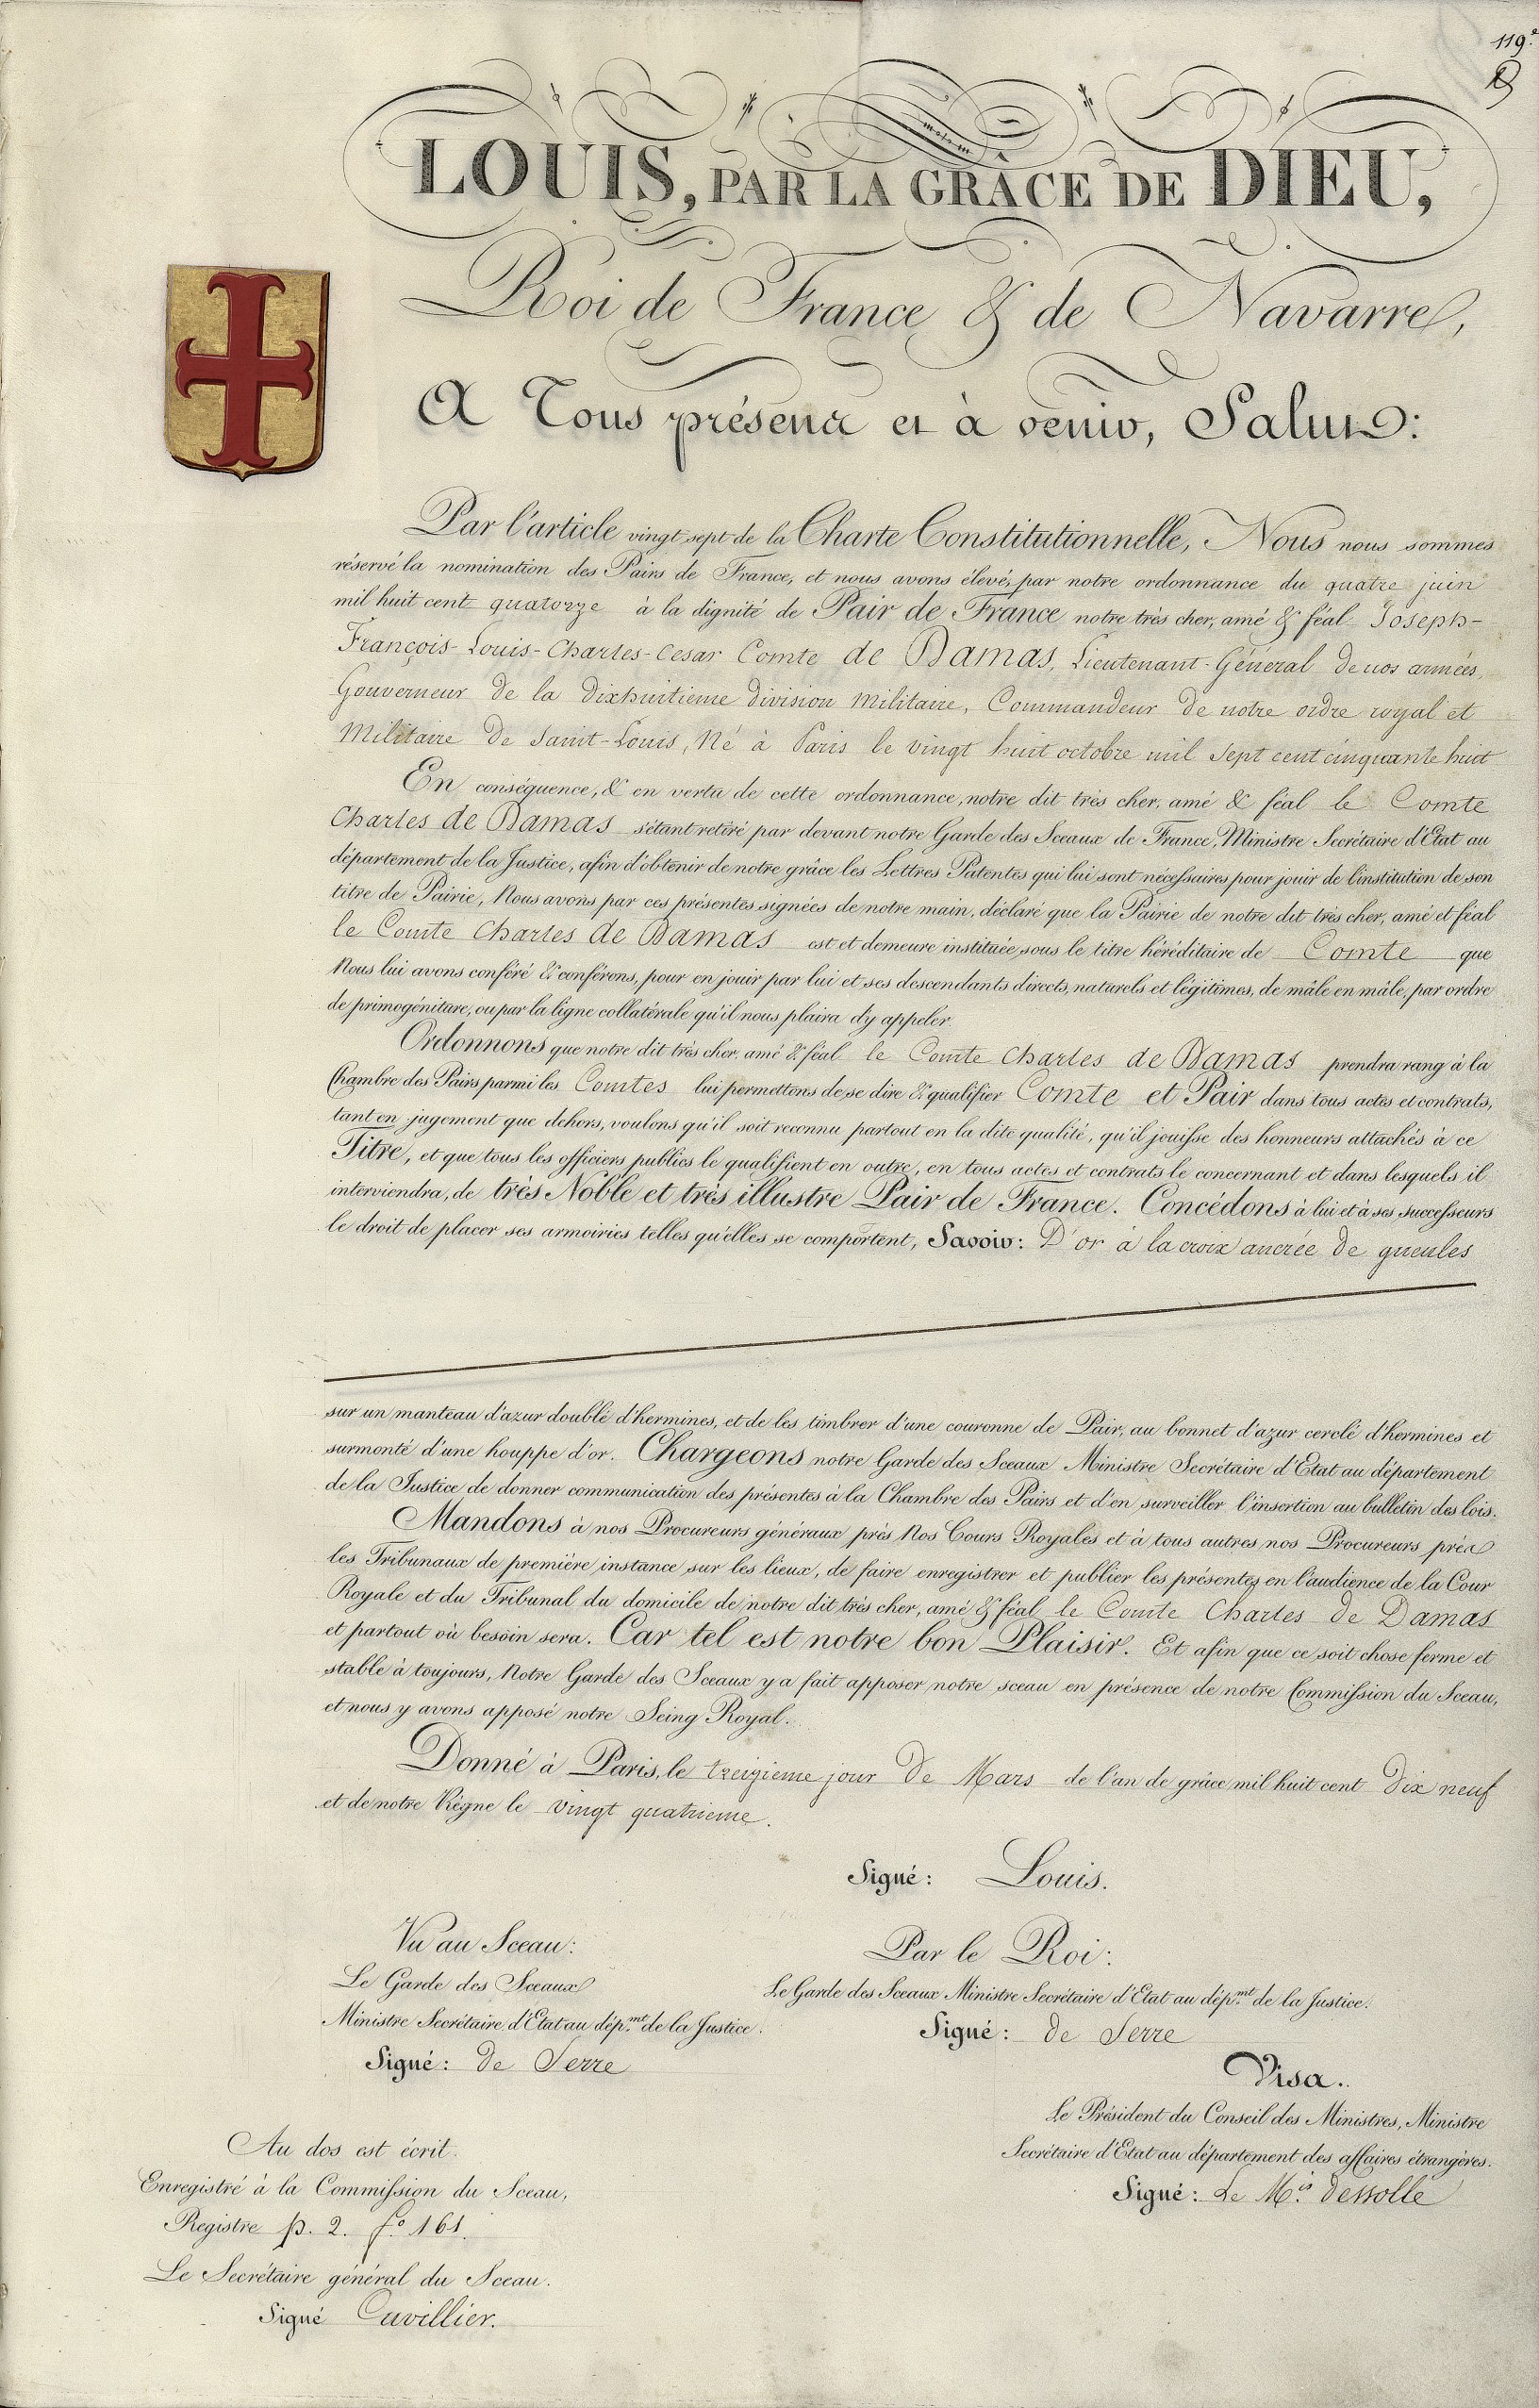 119e
LOUIS, PAR LA GRÂCE DE DIEU,
Roi de France & de Navarre,
A Tous présens et à venir, Salut:
Par l'article vingt sept de la Charte Constitutionnelle, Nous nous sommes
réservé la nomination des Pairs de France, et nous avons élevé, par notre ordonnance du quatre juin
mil huit cent quatorze à la dignité de Pair de France notre très cher, amé & féal Joseph-
François-Louis-Charles-Cesar Comte de Damas, Lieutenant-Général de nos armées,
Gouverneur de la dixhuitieme division militaire, Commandeur de notre ordre royal et
Militaire de Saint-Louis, Né à Paris le vingt huit octobre mil sept cent cinquante huit
En conséquence, & en vertu de cette ordonnance, notre dit très cher, amé & féal le Comte
Charles de Damas s'étant retiré par devant notre Garde des Sceaux de France, Ministre Secrétaire d'Etat au
département de la Justice, afin d'obtenir de notre grâce les Lettres Patentes qui lui sont nécessaires pour jouir de l'institution de son
titre de Pairie, Nous avons par ces présentes signées de notre main, déclaré que la Pairie de notre dit très cher, amé et féal
le Comte Charles de Damas est et demeure instituée sous le titre héréditaire de Comte que
Nous lui avons conféré & conférons, pour en jouir par lui et ses descendants directs, naturels et légitimes, de mâle en mâle, par ordre
de primogéniture, ou par la ligne collatérale qu'il nous plaira d'y appeler.
Ordonnons que notre dit très cher, amé & féal le Comte Charles de Damas prendra rang à la
Chambre des Pairs parmi les Comtes lui permettons de se dire & qualifier Comte et Pair dans tous actes et contrats,
tant en jugement que dehors, voulons qu'il soit reconnu partout en la dite qualité, qu'il jouisse des honneurs attachés à ce
Titre, et que tous les officiers publics le qualifient en outre, en tous actes et contrats le concernant et dans lesquels il
interviendra, de très Noble et très illustre Pair de France. Concédons à lui et à ses successeurs
le droit de placer ses armoiries telles qu'elles se comportent, Savoir: D'or à la croix ancrée de gueules
sur un manteau d'azur doublé d'hermines, et de les timbrer d'une couronne de Pair, au bonnet d'azur cerclé d'hermines et
surmonté d'une houppe d'or. Chargeons notre Garde des Sceaux Ministre Secrétaire d'Etat au département
de la Justice de donner communication des présentes à la Chambre des Pairs et d'en surveiller l'insertion au bulletin des lois.
Mandons à nos Procureurs généraux près Nos Cours Royales et à tous autres nos Procureurs près
les Tribunaux de première instance sur les lieux, de faire enregistrer et publier les présentes en l'audience de la Cour
Royale et du Tribunal du domicile de notre dit très cher, amé & féal le Comte Charles de Damas
et partout où besoin sera. Car tel est notre bon Plaisir. Et afin que ce soit chose ferme et
stable à toujours, Notre Garde des Sceaux y a fait apposer notre sceau en présence de notre Commission du Sceau,
et nous y avons apposé notre Seing Royal.
Donné à Paris, le treizieme jour de Mars de l'an de grâce mil huit cent dix neuf
et de notre Règne le vingt quatrieme.
Signé: Louis.
Vu au Sceau:
Le Garde des Sceaux
Ministre Secrétaire d'Etat au dép.mt de la Justice.
Signé: de Serre
Par le Roi:
Le Garde des Sceaux Ministre Secrétaire d'Etat au dép.mt de la Justice.
Signé: de Serre
Visa.
Le Président du Conseil des Ministres, Ministre
Secrétaire d'Etat au département des affaires étrangères.
Signé: Le M.is dessolle
Au dos est écrit.
Enregistré à la Commission du Sceau,
Registre p. 2. f.o 161.
Le Secrétaire général du Sceau.
Signé Cuvillier.